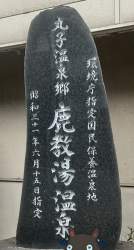 環境庁指定国民保養温泉地
丸子温泉郷
鹿教湯温泉
昭和三十一年六月十五日指定